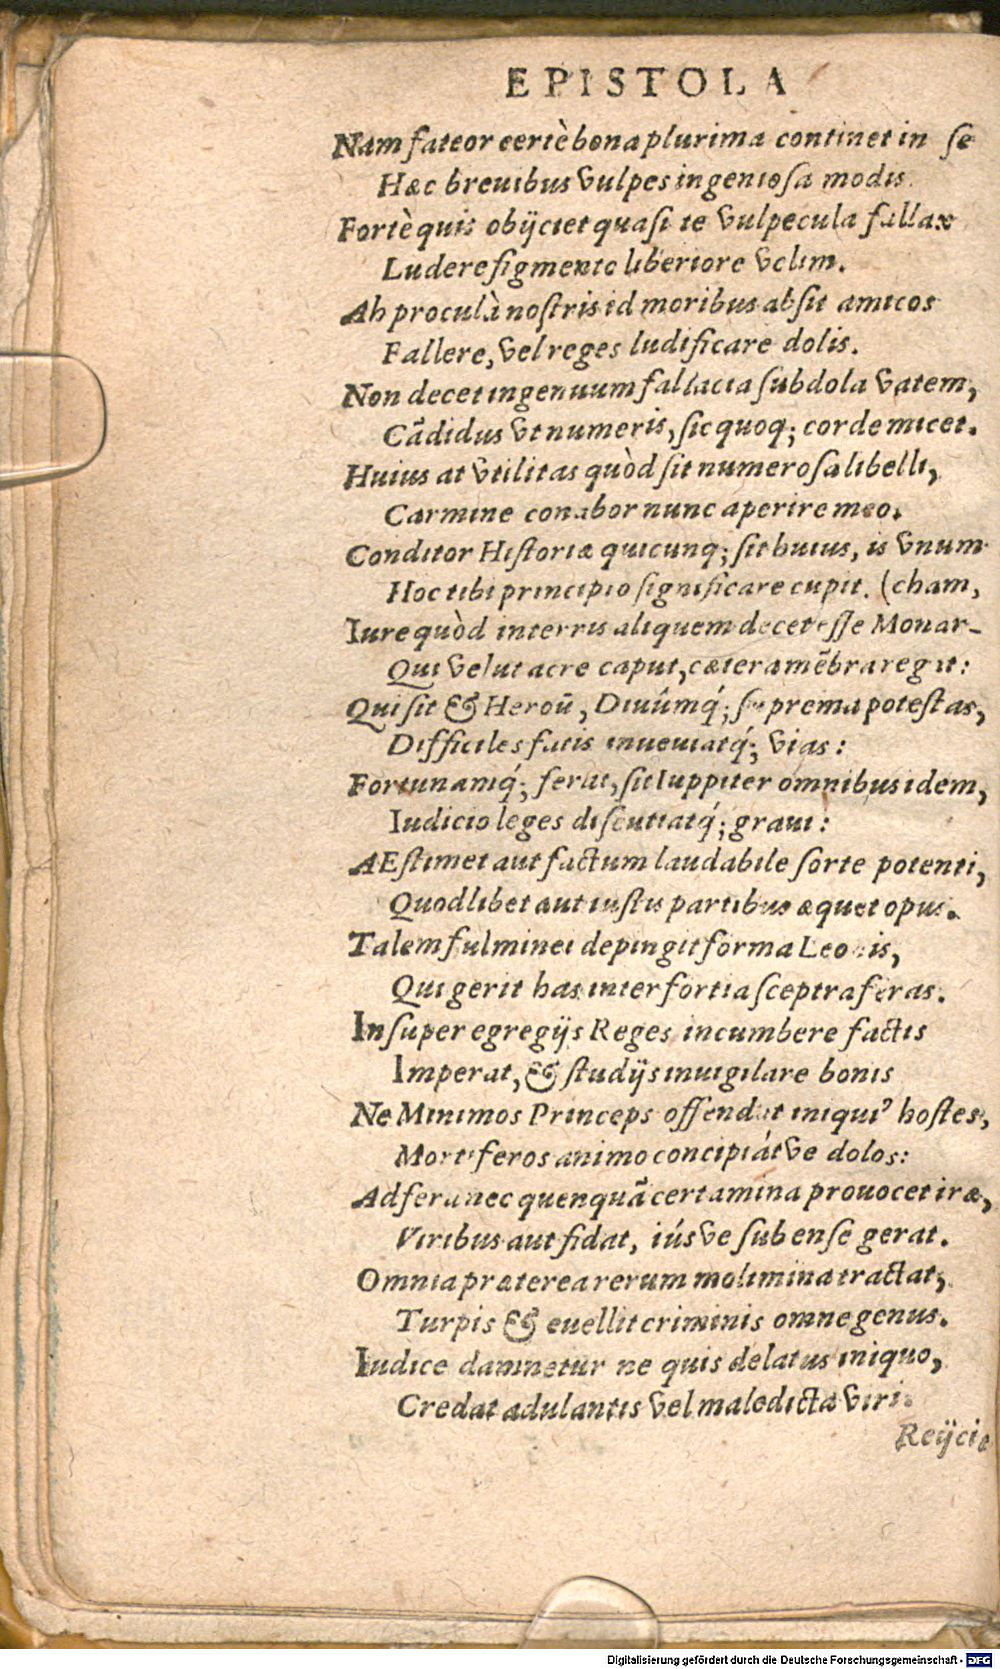 EPISTOLA
Nam fateor certè bona plurima continet in se
Hæc breuibus vulpes ingeniosa modis.
Fortè quis obijciet quasi te vulpecula fallax
Ludere figmento liberiore velim.
Ah procul à nostris id moribus absit amicos
Fallere, vel reges ludificare dolis.
Non decet ingenuum fallacia subdola vatem,
Cãdidus vt numeris, sic quoq; corde micet.
Huius at vtilitas quòd sit numerosa libelli,
Carmine conabor nunc aperire meo.
Conditor Historiæ quicunq; sit huius, is vnum
Hoc tibi principio significare cupit. (cham,
Iure quòd in terris aliquem decet esse Monar-
Qui velut acre caput, cætera mẽbra regit:
Qui sit & Heroũ, Diuûmq́; suprema potestas,
Difficiles fatis inueniatq́; vias:
Fortunamq́; ferat, sit Iuppiter omnibus idem,
Iudicio leges discutiatq́; graui:
AEstimet aut factum laudabile sorte potenti,
Quodlibet aut iustis partibus æquet opus.
Talem fulminei depingit forma Leonis,
Qui gerit has inter fortia sceptra feras.
Insuper egregijs Reges incumbere factis
Imperat, & studijs inuigilare bonis
Ne Minimos Princeps offendat iniqui' hostes,
Mortiferos animo concipiátve dolos:
Ad fera nec quenquã certamina prouocet iræ,
Viribus aut fidat, iúsve sub ense gerat.
Omnia præterea rerum molimina tractat,
Turpis & euellit criminis omne genus.
Iudice damnetur ne quis delatus iniquo,
Credat adulantis vel maledicta viri.
Reijcie
Digitalisierung gefördert durch die Deutsche Forschungsgemeinschaft - DFG